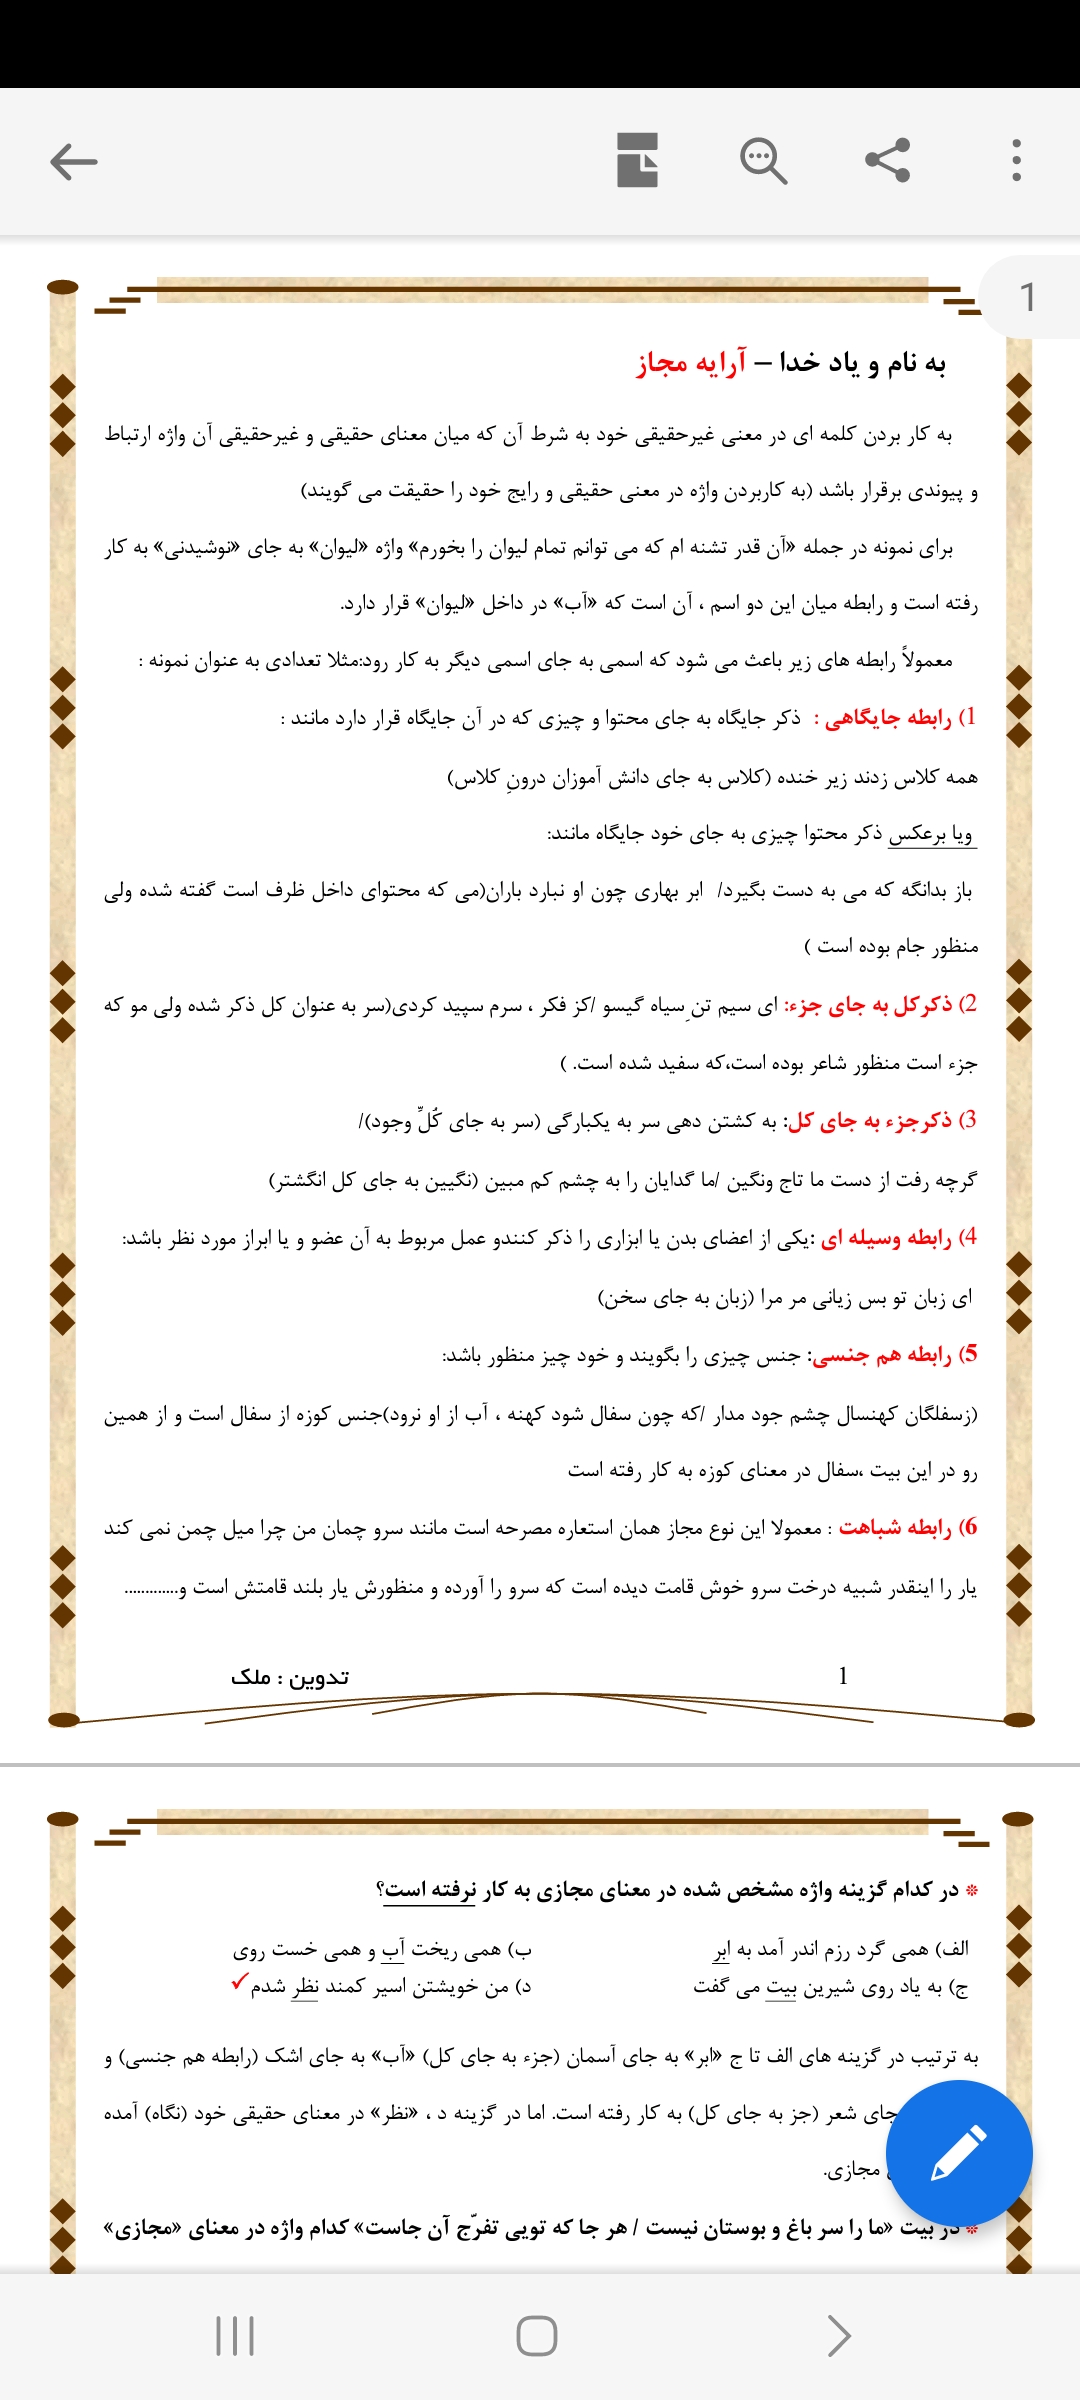 1
به نام و یاد خدا – آرایه مجاز
به کار بردن کلمه ای در معنی غیرحقیقی خود به شرط آن که میان معنای حقیقی و غیرحقیقی آن واژه ارتباط
و پیوندی برقرار باشد (به کاربردن واژه در معنی حقیقی و رایج خود را حقیقت می گویند)
برای نمونه در جمله «آن قدر تشنه ام که می توانم تمام لیوان را بخورم» واژه «لیوان» به جای «نوشیدنی» به کار
رفته است و رابطه میان این دو اسم ، آن است که «آب» در داخل «لیوان» قرار دارد.
معمولاً رابطه های زیر باعث می شود که اسمی به جای اسمی دیگر به کار رود:مثلا تعدادی به عنوان نمونه :
1) رابطه جایگاهی : ذکر جایگاه به جای محتوا و چیزی که در آن جایگاه قرار دارد مانند :
همه کلاس زدند زیر خنده (کلاس به جای دانش آموزان درونِ کلاس)
ویا برعکس ذکر محتوا چیزی به جای خود جایگاه مانند:
باز بدانگه که می به دست بگیرد/ ابر بهاری چون او نبارد باران(می که محتوای داخل ظرف است گفته شده ولی
منظور جام بوده است )
2) ذکرکل به جای جزء: ای سیم تن ِسیاه گیسو /کز فکر ، سرم سپید کردی(سر به عنوان کل ذکر شده ولی مو که
جزء است منظور شاعر بوده است،که سفید شده است. )
3) ذکرجزء به جای کل: به کشتن دهی سر به یکبارگی (سر به جای کُلِّ وجود)/
گرچه رفت از دست ما تاج ونگین /ما گدایان را به چشم کم مبین (نگیین به جای کل انگشتر)
4) رابطه وسیله ای :یکی از اعضای بدن یا ابزاری را ذکر کنندو عمل مربوط به آن عضو و یا ابراز مورد نظر باشد:
ای زبان تو بس زیانی مر مرا (زبان به جای سخن)
5) رابطه هم جنسی: جنس چیزی را بگویند و خود چیز منظور باشد:
(زسفلگان کهنسال چشم جود مدار /که چون سفال شود کهنه ، آب از او نرود)جنس کوزه از سفال است و از همین
رو در این بیت ،سفال در معنای کوزه به کار رفته است
6) رابطه شباهت : معمولا این نوع مجاز همان استعاره مصرحه است مانند سرو چمان من چرا میل چمن نمی کند
یار را اینقدر شبیه درخت سرو خوش قامت دیده است که سرو را آورده و منظورش یار بلند قامتش است و.............
1 تدوین : ملک
* در کدام گزینه واژه مشخص شده در معنای مجازی به کار نرفته است؟
الف) همی گرد رزم اندر آمد به ابر ب) همی ریخت آب و همی خست روی
ج) به یاد روی شیرین بیت می گفت د) من خویشتن اسیر کمند نظر شدم ✓
به ترتیب در گزینه های الف تا ج «ابر» به جای آسمان (جزء به جای کل) «آب» به جای اشک (رابطه هم جنسی) و
جای شعر (جز به جای کل) به کار رفته است. اما در گزینه د ، «نظر» در معنای حقیقی خود (نگاه) آمده
مجازی.
* در بیت «ما را سر باغ و بوستان نیست / هر جا که تویی تفرّج آن جاست» کدام واژه در معنای «مجازی»